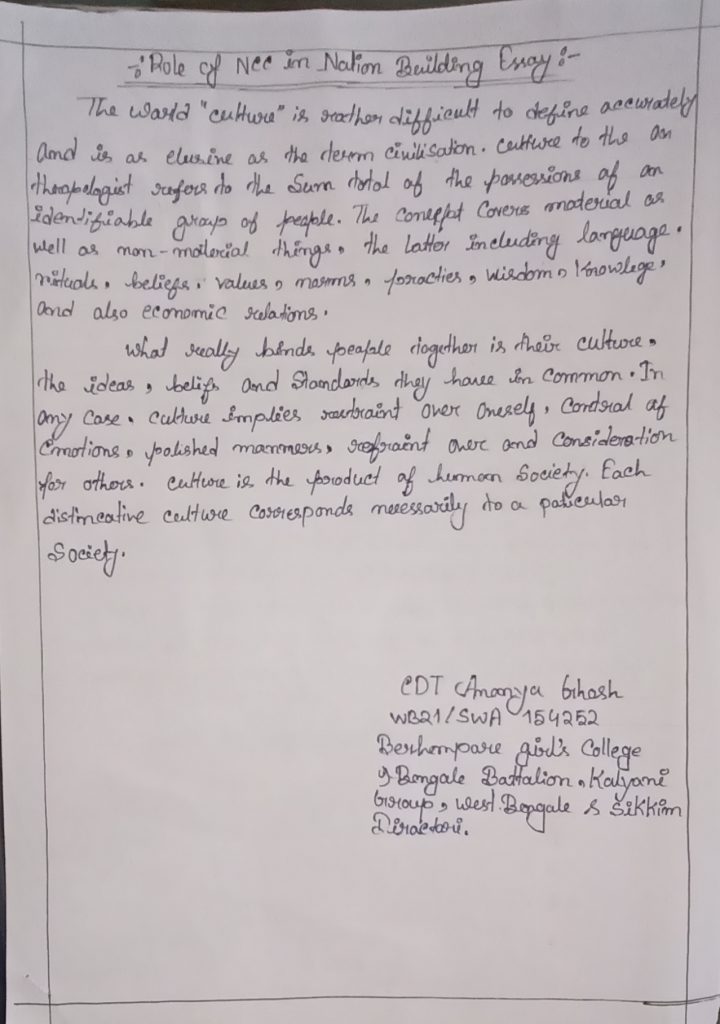 -:Role of Ncc in Nation Building Essay:-
The World "culture" is rather difficult to define accurately
and is as elusine as the term civilisation. culture to the an
thropelogist refers to the Sum total of the possessions of an
identifiable group of people. The concept Covers material as
well as non-material things, the latter including language.
rituals, beliefs, values, norms, practies, wisdom, Knowlege,
and also economic relations.
What really binds people together is their culture,
the ideas, belifs and Standards they have in Common. In
any Case, Culture implies restraint over oneself, Control of
Emotions, polished manners, refraint over and Consideration
for others. culture is the product of human Society. Each
distincative culture Corresponds necessarily to a paticular
Society.
CDT Ananya Ghosh
WB21/SWA 154252
Berhempare girl's College
Bengale Battalion, Kalyani
Group, West Bengale & Sikkim